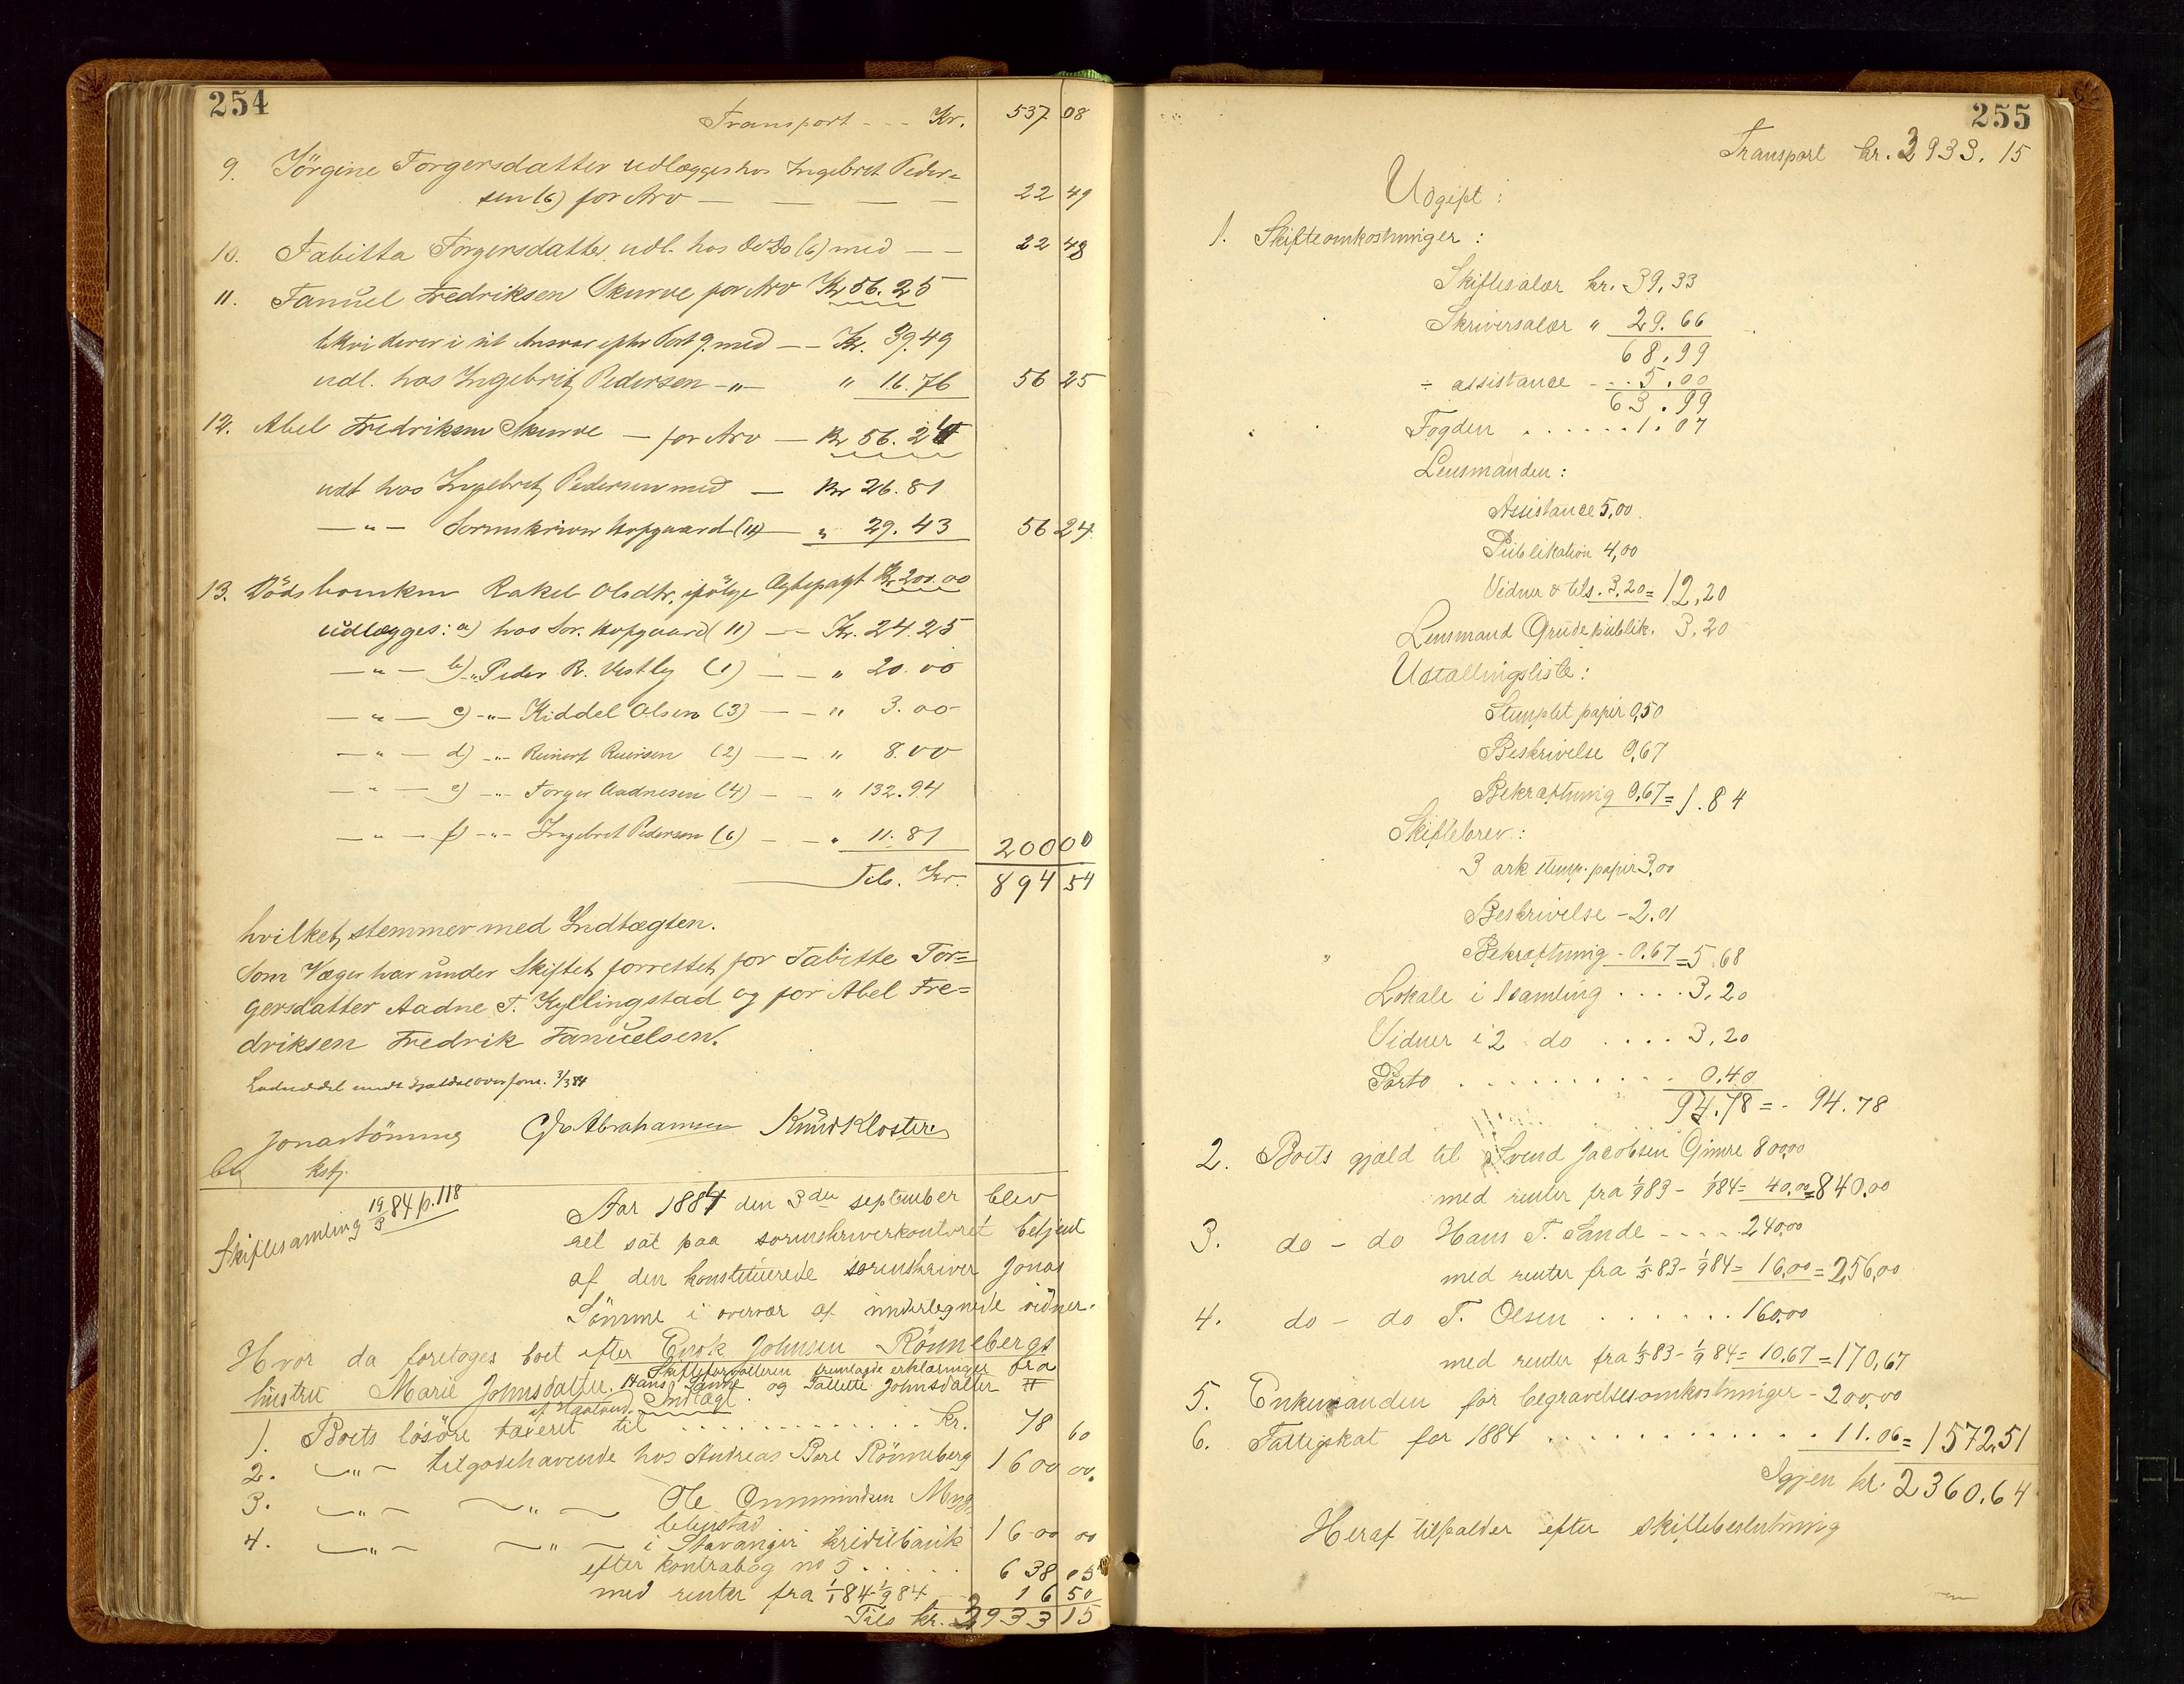 254
Transport - - - Kr. 537 08
9. Jörgine Torgersdatter udlægges hos Ingebret Peder=
sen (6) for Arv — — — — 22 49
10. Tabitta Torgersdatter udl. hos do do (6) med — — 22 48
11. Fanuel Fredriksen Skurve for Arv Kr 56.25
likviderer i sit Ansvar efter Post 9 med — — Kr. 39.49
udl. hos Ingebrit Pedersen -"- " 16.76 56 25
12. Abel Fredriksen Skurve — for Arv — Kr 56.24
udl hos Ingebret Pedersen med — Kr 26.81
— " — Sorenskriver Hofgaard (11) — " 29.43 56 24
13. Dödsbomken Rakel Olsdtr. ifölge Ægtepagt Kr 200.00
udlægges: a) hos Sor. Hofgaard (11) — — Kr. 24.25
— " — b) -"- Peder R. Vestly (1) — — " 20.00
— " — c) -"- Kiddel Olsen (3) — — " 3.00
— " — d) -"- Reinert Reiersen (2) — — " 8.00
— " — e) -"- Torger Aadnesen (4) — — " 132.94
— " — f) -"- Ingebret Pedersen (6) — — " 11.81 200 00
Tils. Kr. 894 54
hvilket stemmer med Indtægten.
Som Værger har under Skiftet forrettet for Tabitte Tor=
gersdatter Aadne T. Kyllingstad og for Abel Fre=
driksen Fredrik Fanuelsen.
3/3 84
Jonas Sömme C Abrahamsen Knud Kloster
kstf.
Skiftesamling 19/3 84 p. 118
Aar 1884 den 3die september blev
ret sat paa sorenskriverkontoret betjent
af den konstituerede sorenskriver Jonas
Sömme i overvær af undertegnede vidner.
Hvor da foretoges boet efter Enok Johnsen Rönnebergs
Skifteforvalteren fremlagde erklæringer fra
hustru Marie Johnsdatter. Hans Sande og Tallette Johnsdatter
Indtægt.
1. Boets lösöre taxeret til . . . . . . . . . . kr. 78 60
2. — " — tilgodehavende hos Andreas Bore Rönneberg 1600 00
3. — " — — " — Ole Ommundsen Myg
lebustad 1600 00
4. — " — — " — i Stavanger kreditbank
efter kontrabog no 5 . . . . . 638 05
med renter fra 1/1 84 - 1/9 84 16 50
Tils kr. 3933 15
255
Transport kr. 3933.15
Udgift:
1. Skifteomkostninger:
Skiftesalær kr. 39.33
Skriversalær " 29.66
68.99
÷ assistance - . . 5.00
63.99
Fogden . . . . . . 1.07
Lensmanden:
Assistance 5,00
Publikation 4,00
Vidner & tils. 3.20 = 12,20
Lensmand Grude publik. 3.20
Udtallingsliste:
Stemplet papir 0,50
Beskrivelse 0,67
Bekræftning 0,67 = 1.84
Skiftebrev:
3 ark stemp. papir 3,00
Beskrivelse - 2.01
Bekræftning - 0.67 = 5.68
Lokale i 1 samling . . . . 3.20
Vidner i 2 do . . . . 3.20
Porto . . . . . . . . . . 0.40
94.78 = - 94.78
2. Boets gjæld til Svend Jacobsen Gimre 800,00
med renter fra 1/9 83 - 1/9 84 = 40,00 = 840.00
3. do - do Hans T. Sande - - - - 240,00
med renter fra 1/5 83 - 1/9 84 = 16,00 = 256,00
4. do - do T. Olsen . . . . . . 160,00
med renter fra 1/5 83 - 1/9 84 = 10.67 = 170,67
5. Enkemanden for begravelsesomkostninger - 200,00
6. Fattigskat for 1884 . . . . . . . . . . . . 11.06 = 1572,51
Igjen kr. 2360.64
Heraf tilfalder efter skiftebeslutning